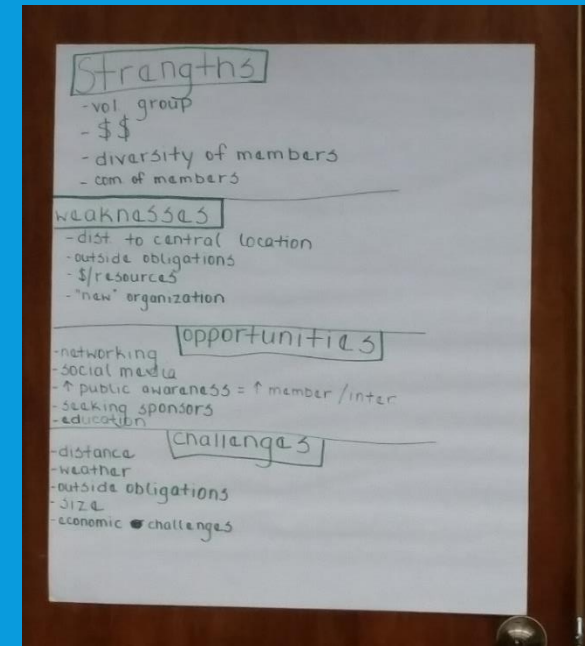 Strengths
-vol. group
-$$
-diversity of members
-com. of members
weaknesses
-dist. to central location
-outside obligations
-$/resources
-"new" organization
opportunities
-networking
-social media
-↑ public awareness = ↑ member/inter
-seeking sponsors
-education
challenges
-distance
-weather
-outside obligations
-size
-economic challenges